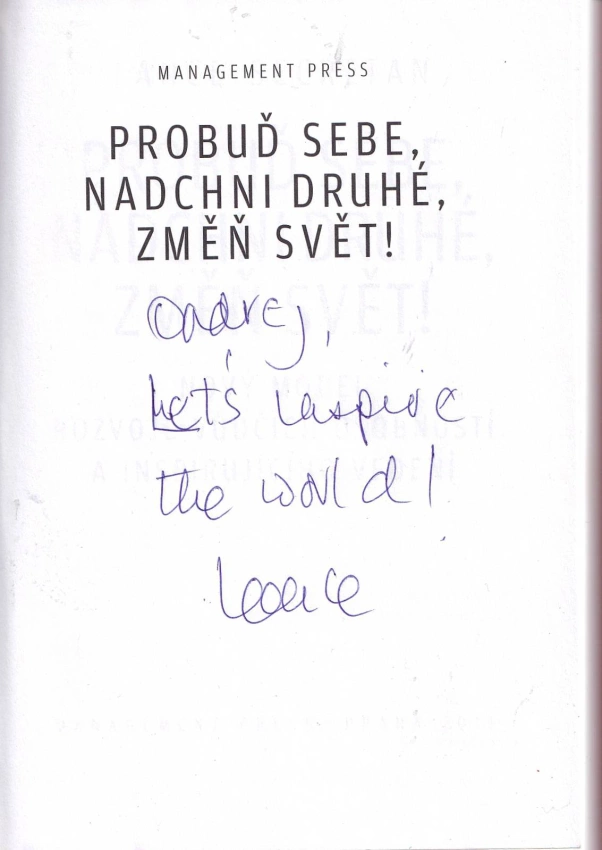 MANAGEMENT PRESS
PROBUĎ SEBE,
NADCHNI DRUHÉ,
ZMĚŇ SVĚT!
Ondrej,
Let's inspire
the world!